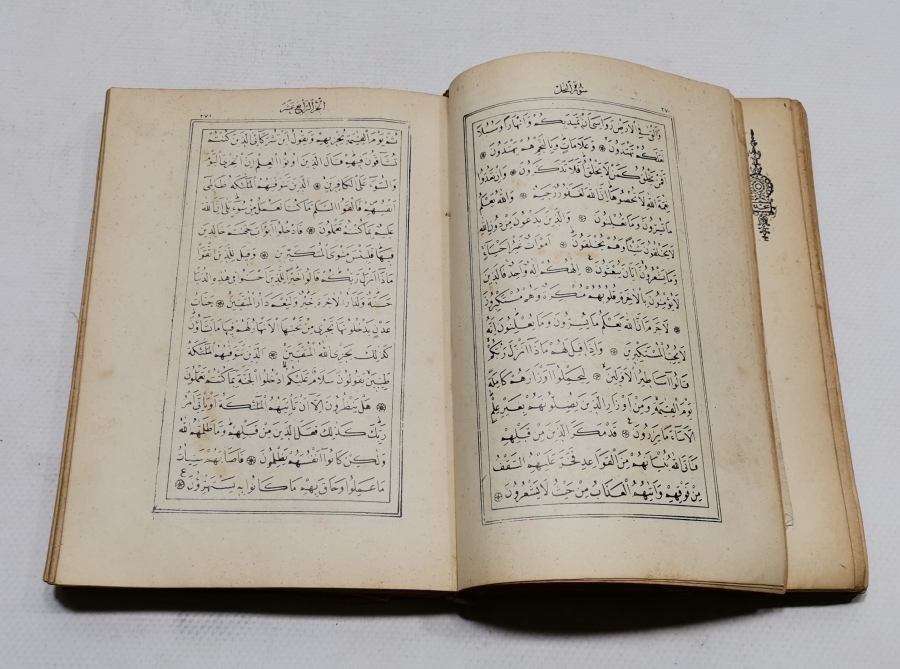 سُورَةُ النَّحْلِ
٢٧٠
وَاَلْقٰى فِي الْاَرْضِ رَوَاسِيَ اَنْ تَمِيدَ بِكُمْ وَاَنْهَارًا وَسُبُلًا
لَعَلَّكُمْ تَهْتَدُونَ ۞ وَعَلَامَاتٍ وَبِالنَّجْمِ هُمْ يَهْتَدُونَ ۞
اَفَمَنْ يَخْلُقُ كَمَنْ لَا يَخْلُقُ اَفَلَا تَذَكَّرُونَ ۞ وَاِنْ تَعُدُّوا
نِعْمَةَ اللّٰهِ لَا تُحْصُوهَا اِنَّ اللّٰهَ لَغَفُورٌ رَحِيمٌ ۞ وَاللّٰهُ يَعْلَمُ
مَا تُسِرُّونَ وَمَا تُعْلِنُونَ ۞ وَالَّذِينَ يَدْعُونَ مِنْ دُونِ اللّٰهِ
لَا يَخْلُقُونَ شَيْئًا وَهُمْ يُخْلَقُونَ ۞ اَمْوَاتٌ غَيْرُ اَحْيَاءٍ
وَمَا يَشْعُرُونَ اَيَّانَ يُبْعَثُونَ ۞ اِلٰهُكُمْ اِلٰهٌ وَاحِدٌ فَالَّذِينَ
لَا يُؤْمِنُونَ بِالْاٰخِرَةِ قُلُوبُهُمْ مُنْكِرَةٌ وَهُمْ مُسْتَكْبِرُونَ
۞ لَا جَرَمَ اَنَّ اللّٰهَ يَعْلَمُ مَا يُسِرُّونَ وَمَا يُعْلِنُونَ اِنَّهُ
لَا يُحِبُّ الْمُسْتَكْبِرِينَ ۞ وَاِذَا قِيلَ لَهُمْ مَاذَا اَنْزَلَ رَبُّكُمْ
قَالُوا اَسَاطِيرُ الْاَوَّلِينَ ۞ لِيَحْمِلُوا اَوْزَارَهُمْ كَامِلَةً
يَوْمَ الْقِيٰمَةِ وَمِنْ اَوْزَارِ الَّذِينَ يُضِلُّونَهُمْ بِغَيْرِ عِلْمٍ
اَلَا سَاءَ مَا يَزِرُونَ ۞ قَدْ مَكَرَ الَّذِينَ مِنْ قَبْلِهِمْ
فَاَتَى اللّٰهُ بُنْيَانَهُمْ مِنَ الْقَوَاعِدِ فَخَرَّ عَلَيْهِمُ السَّقْفُ
مِنْ فَوْقِهِمْ وَاَتٰيهُمُ الْعَذَابُ مِنْ حَيْثُ لَا يَشْعُرُونَ ۞
اَلْجُزْءُ الرَّابِعُ عَشَرَ
٢٧١
ثُمَّ يَوْمَ الْقِيٰمَةِ يُخْزِيهِمْ وَيَقُولُ اَيْنَ شُرَكَائِيَ الَّذِينَ كُنْتُمْ
تُشَاقُّونَ فِيهِمْ قَالَ الَّذِينَ اُوتُوا الْعِلْمَ اِنَّ الْخِزْيَ الْيَوْمَ
وَالسُّوءَ عَلَى الْكَافِرِينَ ۞ الَّذِينَ تَتَوَفّٰيهُمُ الْمَلٰئِكَةُ ظَالِمِي
اَنْفُسِهِمْ فَاَلْقَوُا السَّلَمَ مَا كُنَّا نَعْمَلُ مِنْ سُوءٍ بَلٰى اِنَّ اللّٰهَ
عَلِيمٌ بِمَا كُنْتُمْ تَعْمَلُونَ ۞ فَادْخُلُوا اَبْوَابَ جَهَنَّمَ خَالِدِينَ
فِيهَا فَلَبِئْسَ مَثْوَى الْمُتَكَبِّرِينَ ۞ وَقِيلَ لِلَّذِينَ اتَّقَوْا
مَاذَا اَنْزَلَ رَبُّكُمْ قَالُوا خَيْرًا لِلَّذِينَ اَحْسَنُوا فِي هٰذِهِ الدُّنْيَا
حَسَنَةٌ وَلَدَارُ الْاٰخِرَةِ خَيْرٌ وَلَنِعْمَ دَارُ الْمُتَّقِينَ ۞ جَنَّاتُ
عَدْنٍ يَدْخُلُونَهَا تَجْرِي مِنْ تَحْتِهَا الْاَنْهَارُ لَهُمْ فِيهَا مَا يَشَاؤُنَ
كَذٰلِكَ يَجْزِي اللّٰهُ الْمُتَّقِينَ ۞ الَّذِينَ تَتَوَفّٰيهُمُ الْمَلٰئِكَةُ
طَيِّبِينَ يَقُولُونَ سَلَامٌ عَلَيْكُمُ ادْخُلُوا الْجَنَّةَ بِمَا كُنْتُمْ تَعْمَلُونَ
۞ هَلْ يَنْظُرُونَ اِلَّا اَنْ تَأْتِيَهُمُ الْمَلٰئِكَةُ اَوْ يَأْتِيَ اَمْرُ
رَبِّكَ كَذٰلِكَ فَعَلَ الَّذِينَ مِنْ قَبْلِهِمْ وَمَا ظَلَمَهُمُ اللّٰهُ
وَلٰكِنْ كَانُوا اَنْفُسَهُمْ يَظْلِمُونَ ۞ فَاَصَابَهُمْ سَيِّئَاتُ
مَا عَمِلُوا وَحَاقَ بِهِمْ مَا كَانُوا بِهِ يَسْتَهْزِؤُنَ ۞